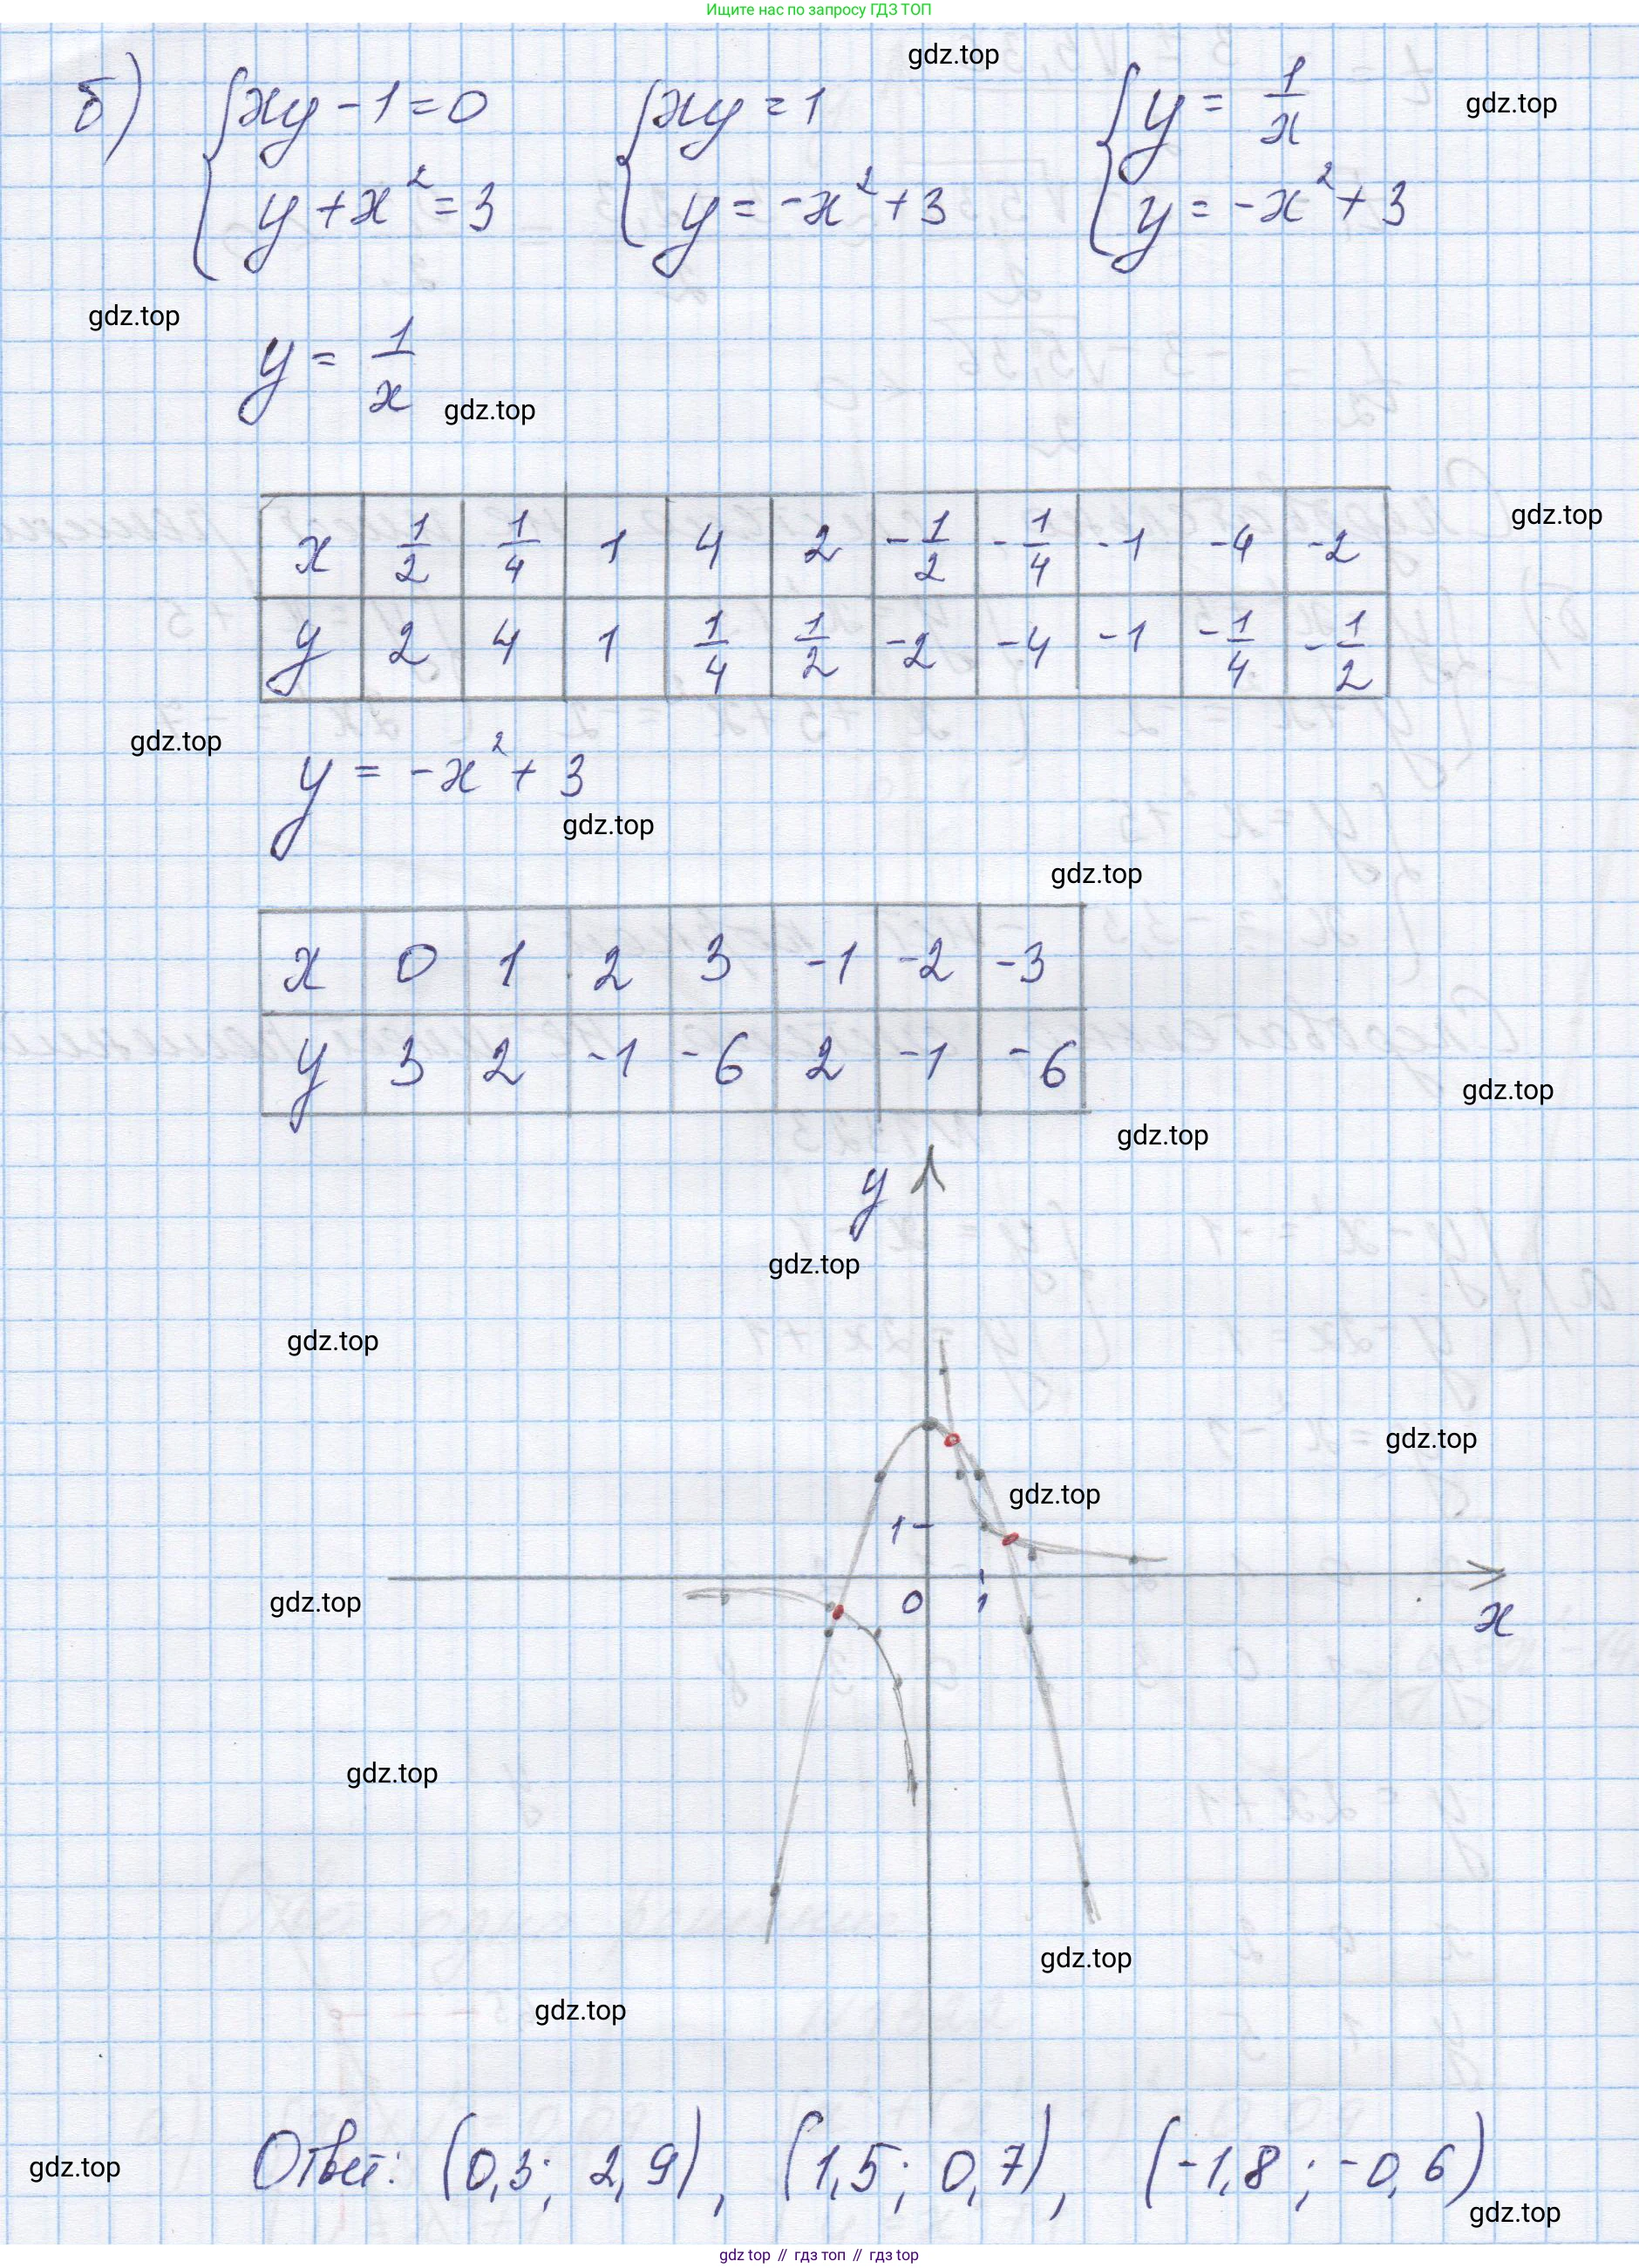 Ищите нас по запросу ГДЗ ТОП
gdz.top
б) { xy - 1 = 0 { xy = 1 { y = 1/x
gdz.top
y + x² = 3 y = -x² + 3 y = -x² + 3
gdz.top
y = 1/x
gdz.top
x 1/2 1/4 1 4 2 -1/2 -1/4 -1 -4 -2
gdz.top
y 2 4 1 1/4 1/2 -2 -4 -1 -1/4 -1/2
gdz.top
y = -x² + 3
gdz.top
gdz.top
x 0 1 2 3 -1 -2 -3
y 3 2 -1 -6 2 -1 -6
gdz.top
gdz.top
y
gdz.top
gdz.top
gdz.top
gdz.top
1
gdz.top
0 1
x
gdz.top
gdz.top
gdz.top
Ответ: (0,3; 2,9), (1,5; 0,7), (-1,8; -0,6)
gdz.top
gdz.top
gdz top // гдз топ // gdz top